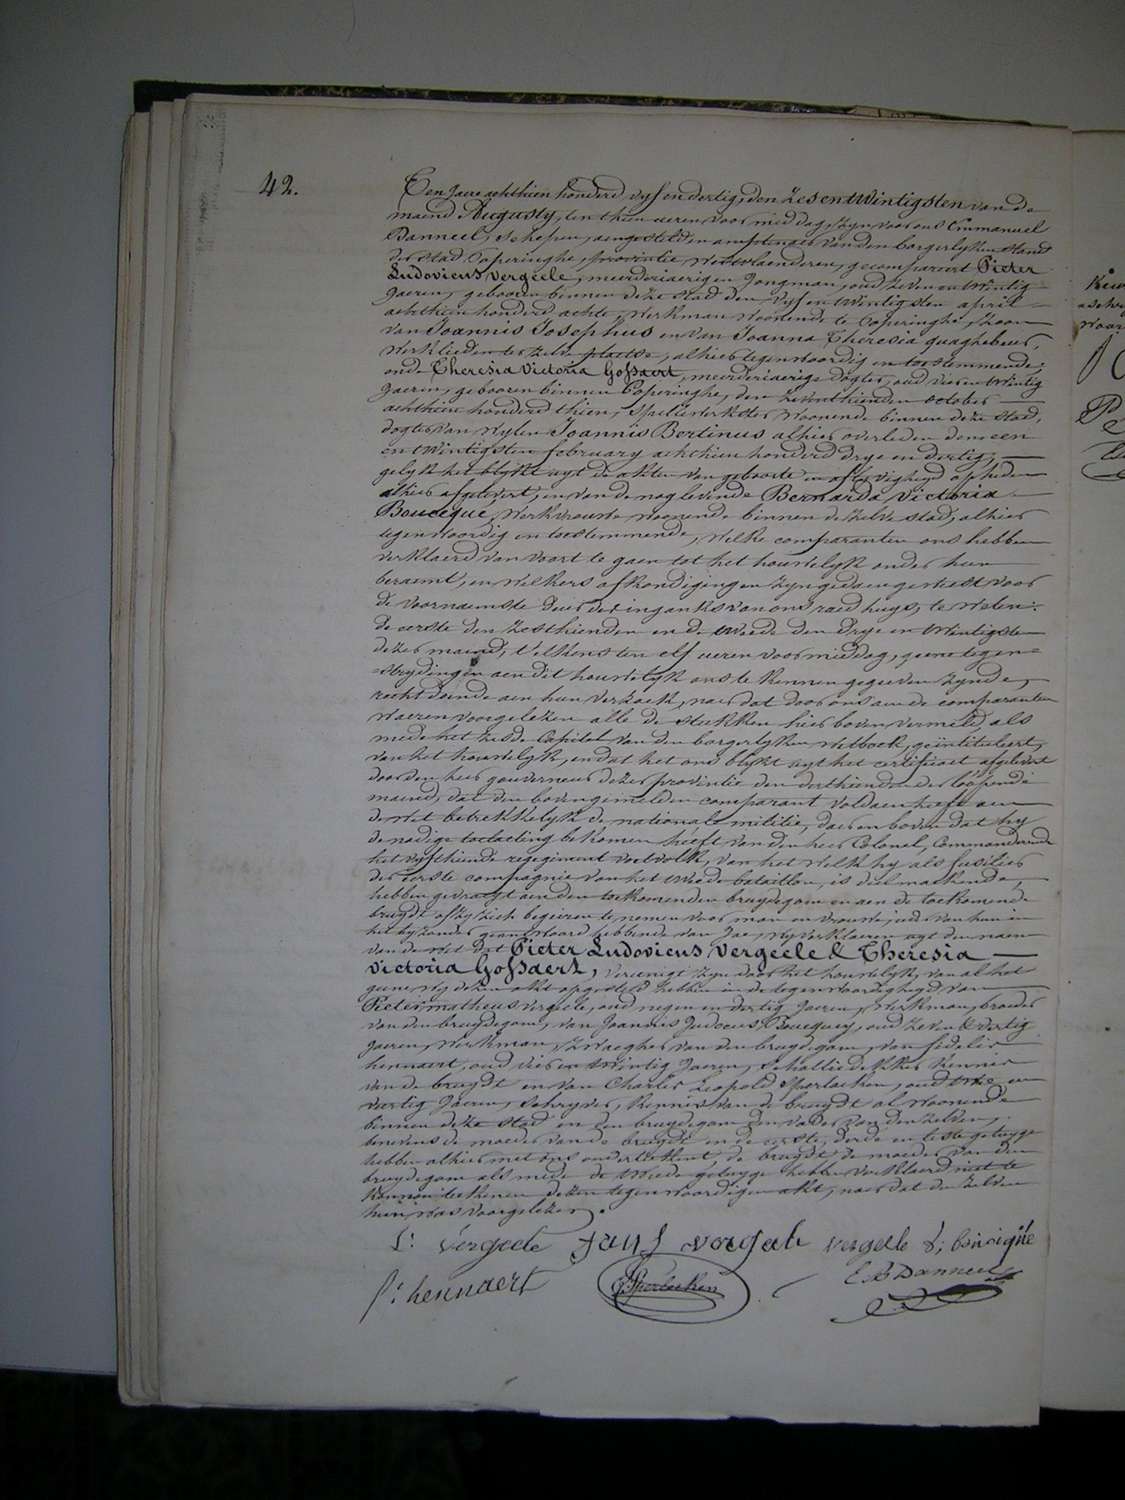 42.
Ten Jaere achthien honderd vyf en dertig, den zes en twintigsten van de
maend Augusty, ten thien ueren voor middag, zyn voor ons Emmanuel
Banneel, schepen, aengesteld en amptenaer van den borgerlyken stand
der stad Poperinghe, provintie Westvlaenderen, gecompareert Pieter
Ludovicus Vergeele, meerderjaerigen Jongman, oud zeven en twintig
Jaeren, gebooren binnen deze stad den vyf en twintigsten april
achthien honderd achte, werkman woonende te Poperinghe, zoon
van Joannis Josephus en van Joanna Theresia quaghebeur,
werklieden ter zelve plaetse, alhier tegenwoordig en toestemmende,
ende Theresia Victoria Gossaert, meerderjaerige dogter, oud vier en twintig
Jaeren, gebooren binnen Poperinghe, den zeventhienden october
achthien honderd thien, spellewerkster woonende binnen deze stad,
dogter van wylen Joannis Bertinus alhier overleden den een
en twintigsten february achthien honderd drye en dertig,
gelyk het blykt uyt de akten van geboorte en aflyvigheyd op heden
alhier afgelevert, en van de nog levende Bernarda Victoria
Boucque, werkvrouwe woonende binnen de zelve stad, alhier
tegenwoordig en toestemmende, welke comparanten ons hebben
verklaerd van voort te gaen tot het houwelyk onder hun
beraemt, en welkers afkondigingen zyn gedaen geweest voor
de voornaemste deur der ingank van ons raed huys, te weten:
de eerste den zesthienden en de tweede den drye en twintigsten
dezer maend, telkens ten elf ueren voormiddag, geene tegen=
=strydingen aen dit houwelyk ons te kennen gegeven zynde,
recht doende aen hun verzoek, naer dat door ons aen de comparanten
waeren voorgelezen alle de stukken hier boven vermeld, als
mede het zesde Capitel van den borgerlyken wetboek, geïntituleert,
van het houwelyk, en dat het ons blykt uyt het certificaet afgelevert
door den heer gouverneur dezer provintie den derthienden der loopende
maend, dat den bovengemelden comparant voldaen heeft aen
de wet betrekkelyk de nationale militie, daer en boven dat hy
de nodige toelaeting bekomen heeft van den heer Colonel, Commanderende
het vyfthiende regegiment voetvolk, van het welk hy als fusilier
der eerste compagnie van het tweede bataillon, is deel maekende,
hebben gevraegt aen den toekomenden bruydegom en aen de toekomende
bruydt of zy zich begeiren te nemen voor man en vrouwe, ieder van hun in
het byzonder geantwoord hebbende van Jae, wy verklaeren uyt den naem
van de wet dat Pieter Ludovicus Vergeele & Theresia
Victoria Gossaert, vereenigt zyn door het houwelyk, van al het
gene wy dezen akt opgesteld hebben in de tegenwoordigheyd van
Pieter matheus vergeele, oud negen en dertig Jaeren, werkman, broeder
van den bruydegom, van Joannis Judocus Boucquey, oud zeven & dertig
Jaeren, werkman, zwaegher van den bruydegom, van fidelis
hennaert, oud vier en twintig Jaeren, schaliedekker kennis
van de bruydt en van Charles Leopold Sporlecken, oud twee en
veertig Jaeren, schryver, kennis van de bruydt al woonende
binnen deze stad en den bruydegom, den vader van den zelven,
benevens de moeder van de bruydt en de eerste, derde en leste getuyge
hebben alhier met ons onderteekent, de bruydt, de moeder van den
bruydegom als mede de tweede getuyge hebben verklaerd niet te
konnen teekenen dezen tegenwoordigen akt, naer dat den zelven
hun was voorgelezen.
vergeele vergeele
hennaert Sporlecken Banneel